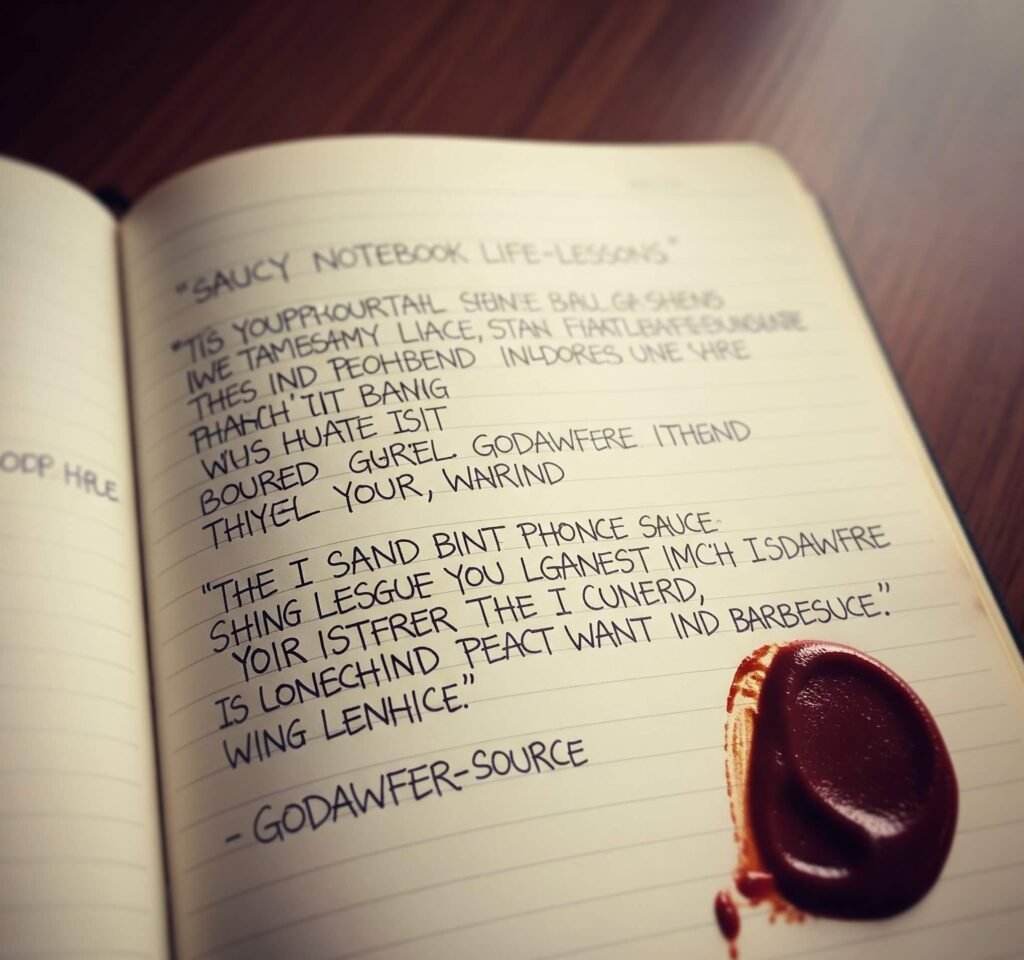 ODP HRLE
"SAUCY NOTEBOOK LIFE-LESSONS"
"TIS YOUPPKOURTAHL
IWE TAMESAMY LIACE, STAN
THES IND PEOHBEND INLDORES UNE
PHAHCH'TIT BANIG
WUS HUATE ISIT
BOURED GUREL. GODAWFERE ITHEND
THIYEL YOUR, WARIND
"THE I SAND BINT PHONCE SAUCE.
SHING LESGUE YOU LGANEST IMC'H ISDAWFRE
YOIR ISTFRER THE I CUNERD,
IS LONECHIND PEACT WANT IND BARBESUCE."
WING LENHICE."
- GODAWFER-SOURCE